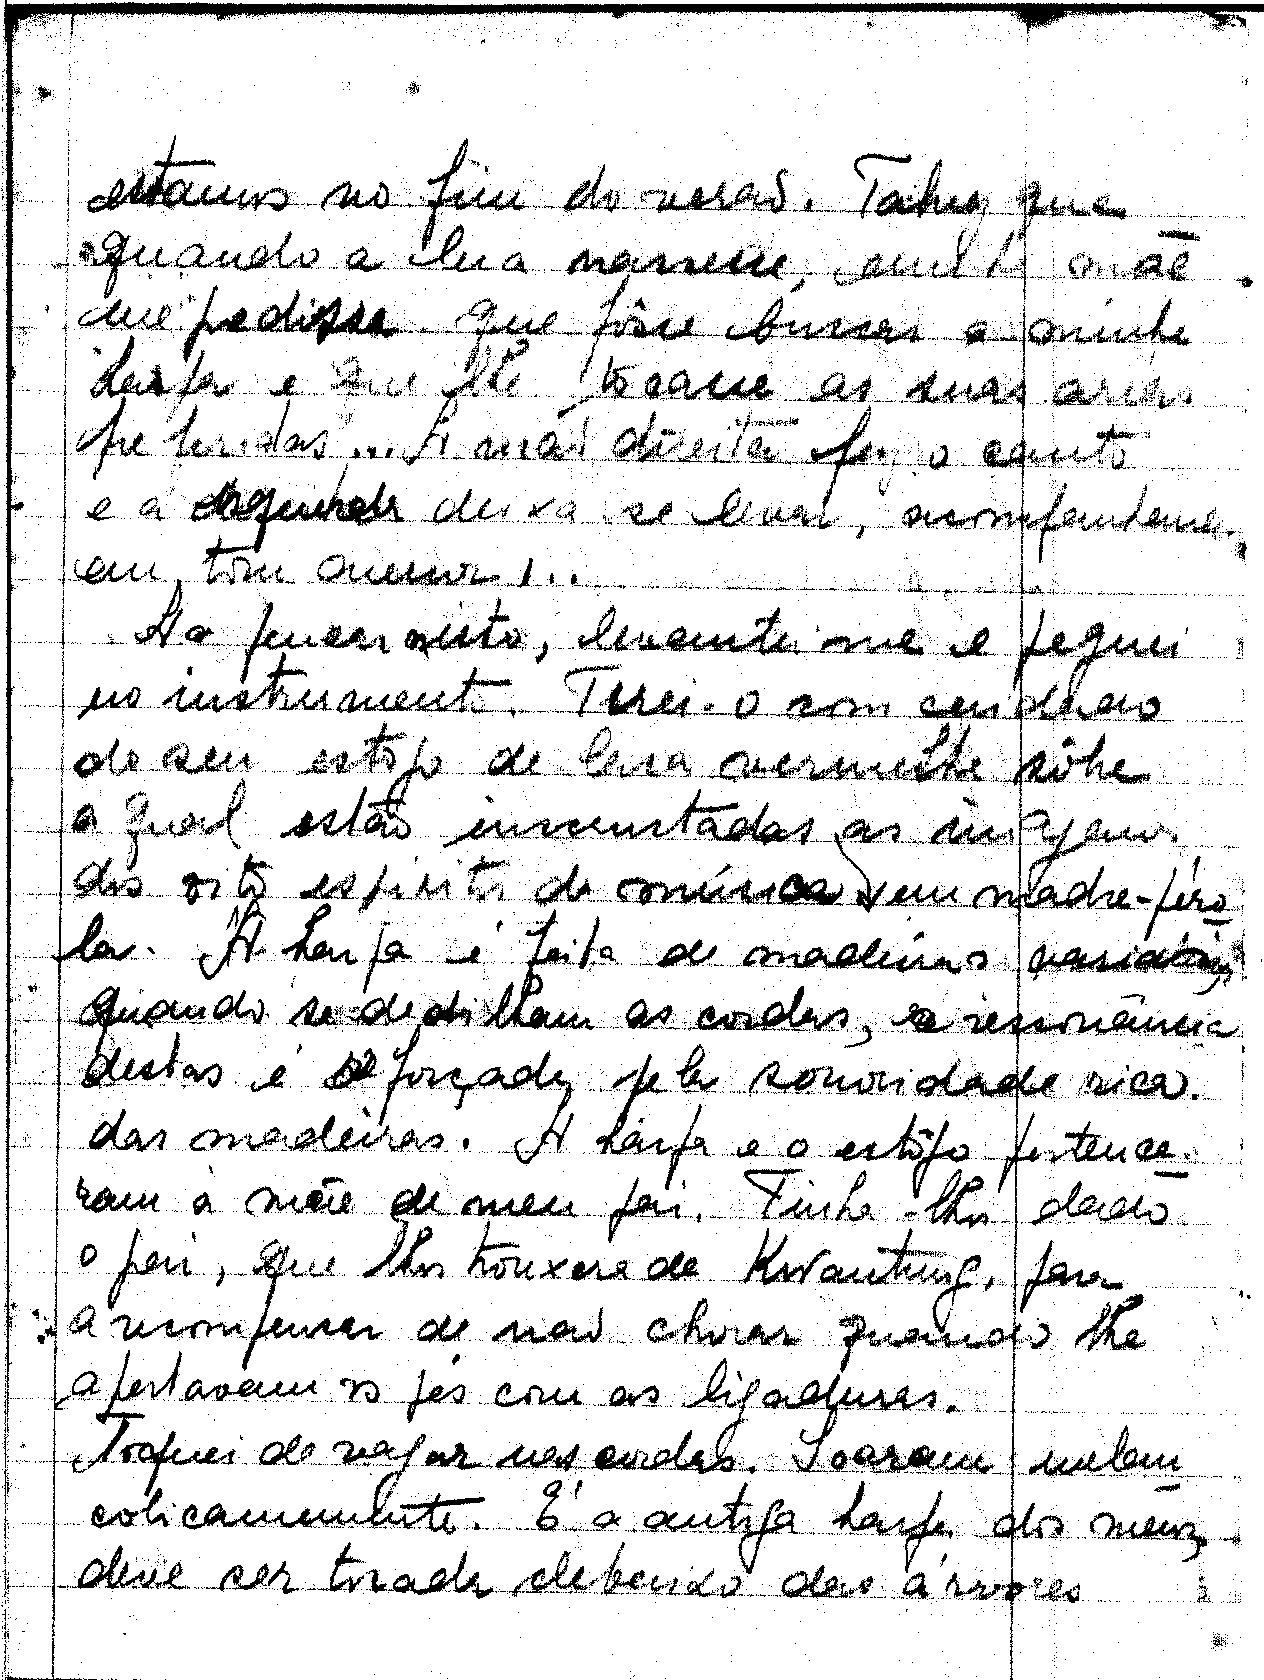 estamos no fim do verão. Talvez que
quando a lua nascesse, minha mãe
me pedisse que fôsse buscar a minha
harpa e que lhe tocasse as suas árias
preferidas... A mão direita faz o canto
e a esquerda deixa-se levar, acompanhando-a
em tom menor...
Ao pensar nisto, levantei-me e peguei
no instrumento. Tirei-o com cuidado
de seu estojo de laca vermelha sôbre
a qual estão incrustadas as imagens
dos oito espíritos da música em madre-péro
la. A harpa é feita de madeiras variadas;
quando se dedilham as cordas, a ressonância
destas é reforçada pela sonoridade rica
das madeiras. A harpa e o estôjo pertence
ram à mãe de meu pai. Tinha-lhos dado
o pai, que lhos trouxera de Kwantung, para
a recompensar de não chorar quando lhe
apertavam os pés com as ligaduras.
Toquei de vagar nas cordas. Soaram melan
colicamente. É a antiga harpa dos meus,
deve ser tocada debaixo das árvores